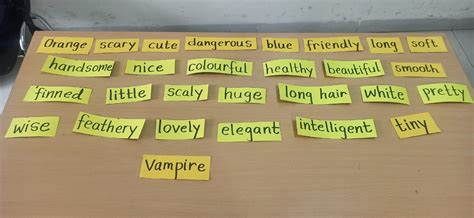 Orange scary cute dangerous blue friendly long soft
handsome nice colourful healthy beautiful smooth
finned little scaly huge long hair white pretty
wise feathery lovely elegant intelligent tiny
Vampire